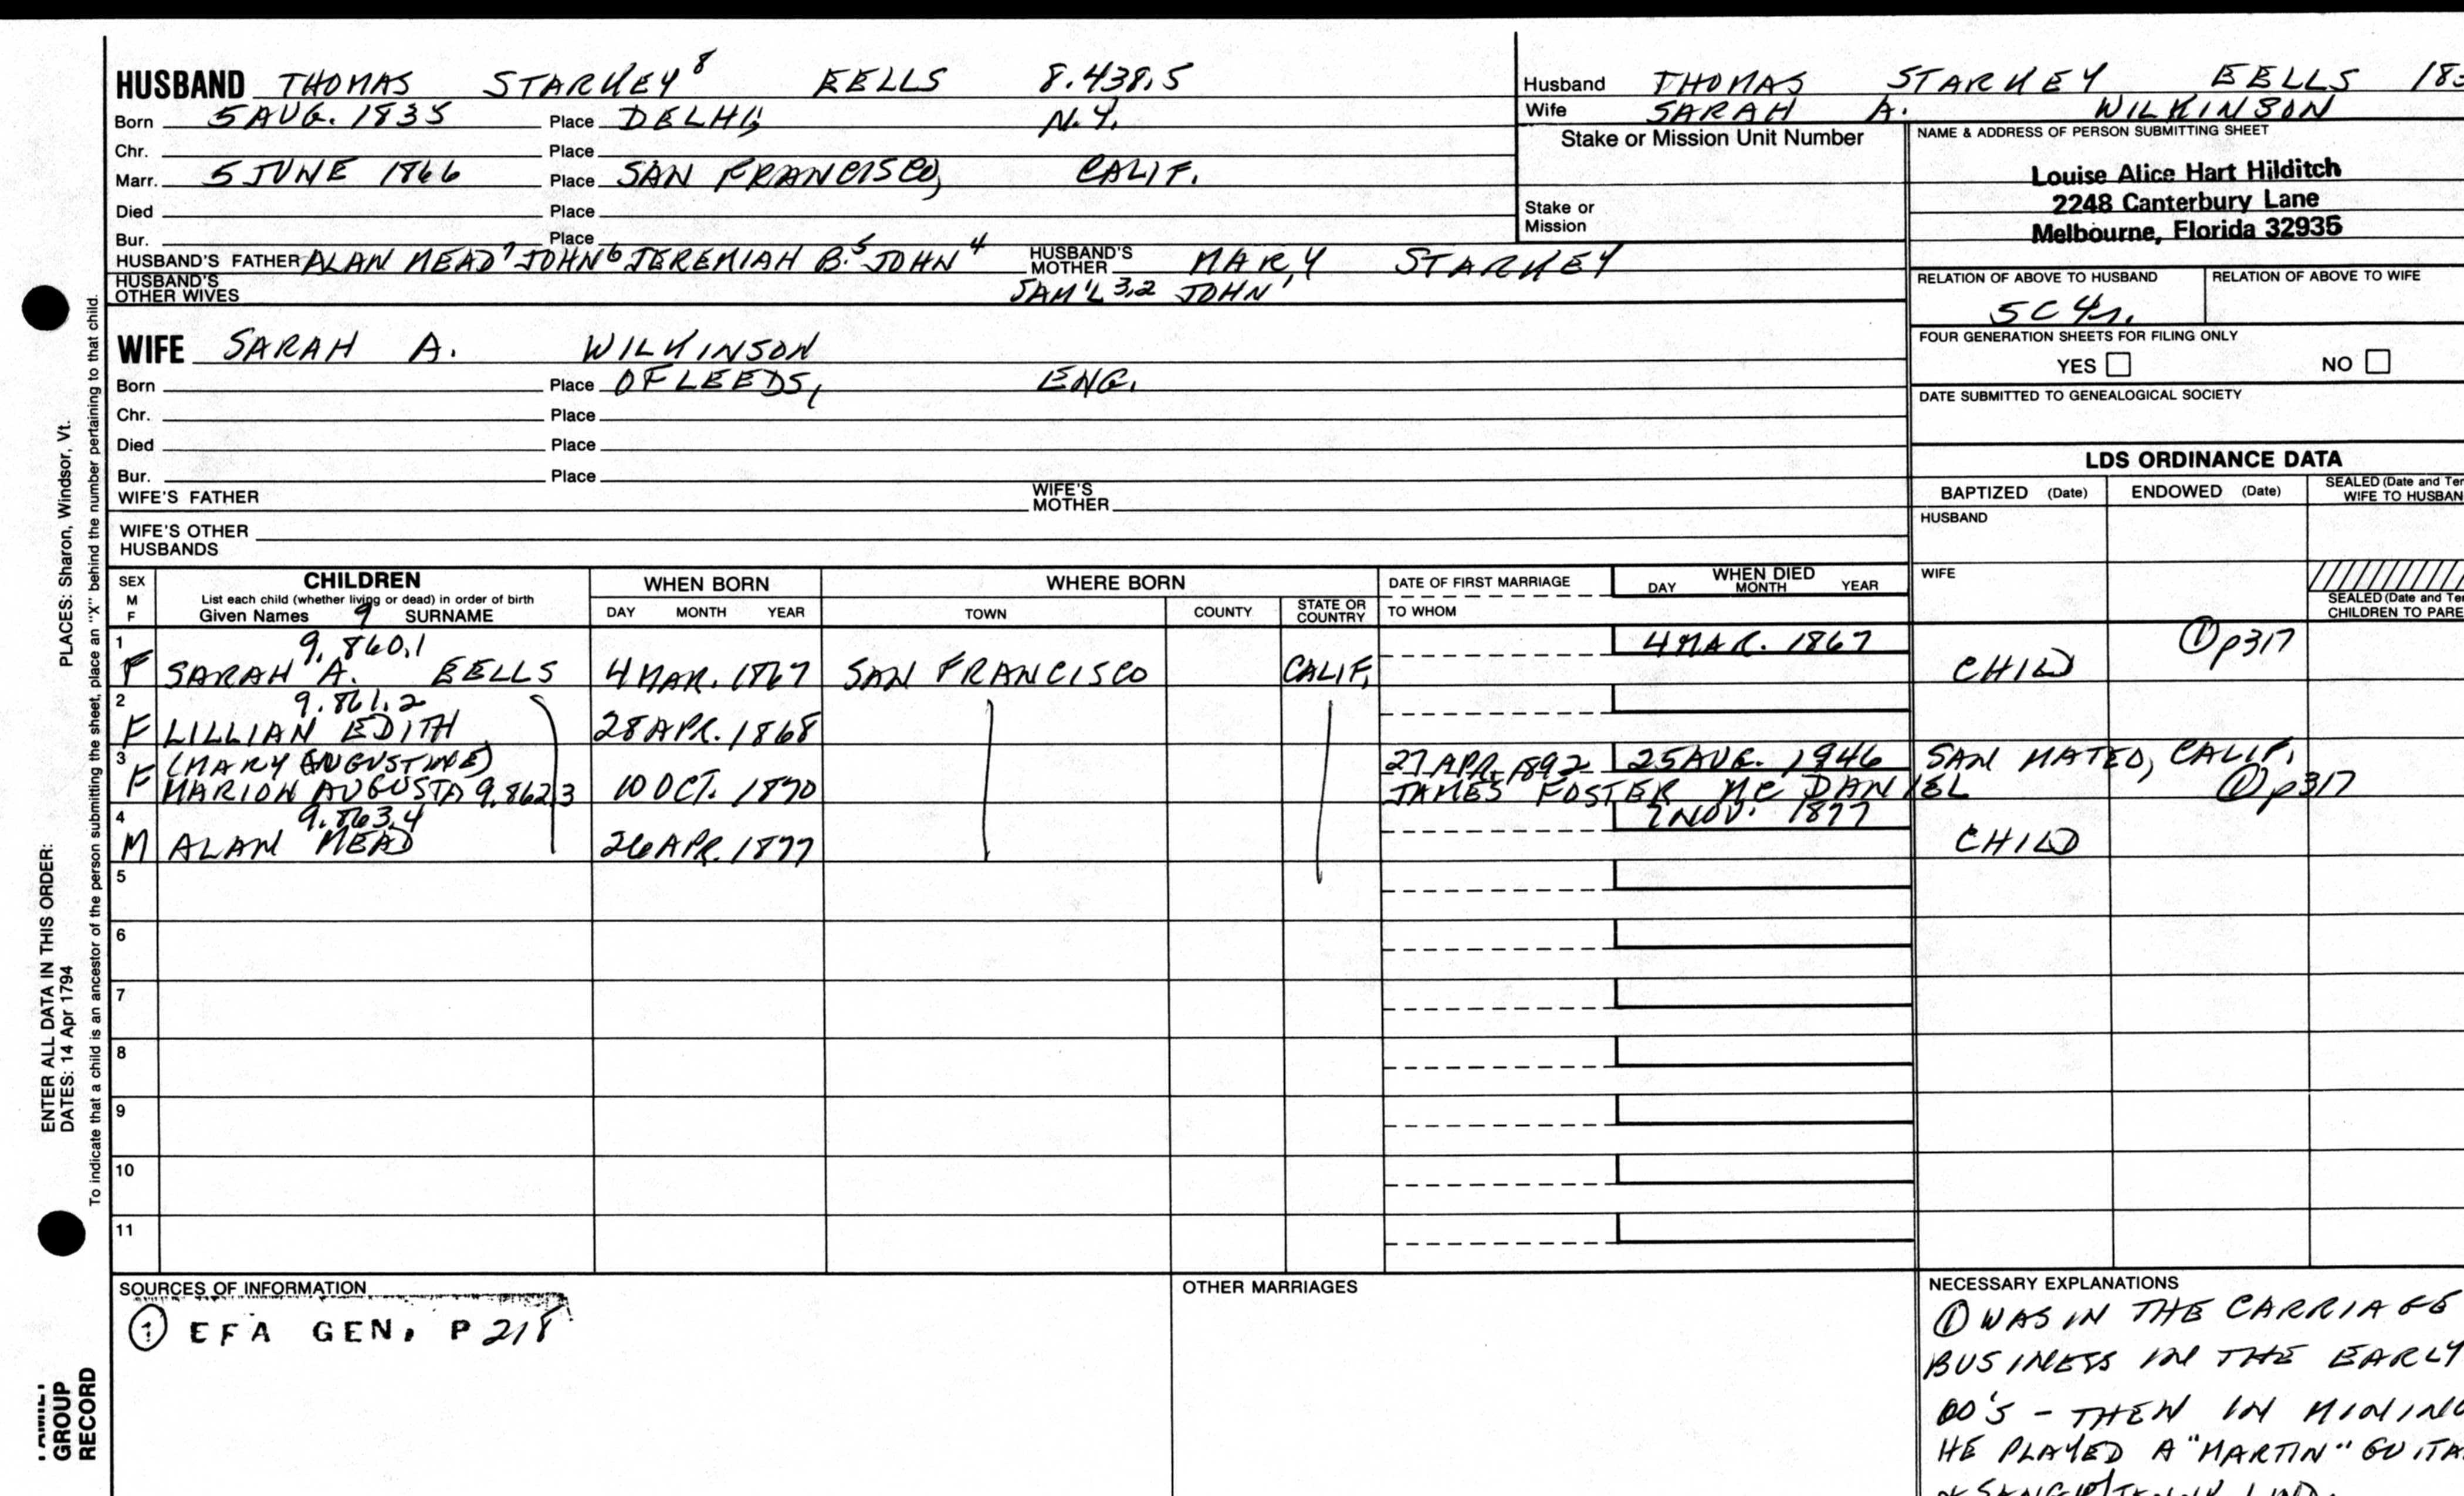 HUSBAND THOMAS STARKEY⁸ EELLS 8.438.5
Born 5 AUG. 1835 Place DELHI, N.Y.
Chr. Place
Marr. 5 JUNE 1866 Place SAN FRANCISCO, CALIF.
Died Place
Bur. Place
HUSBAND'S FATHER ALAN MEAD⁷ JOHN⁶ JEREMIAH B.⁵ JOHN⁴ HUSBAND'S MOTHER MARY STARKEY
HUSBAND'S OTHER WIVES SAM'L 3,2 JOHN¹
WIFE SARAH A. WILKINSON
Born Place OF LEEDS, ENG.
Chr. Place
Died Place
Bur. Place
WIFE'S FATHER WIFE'S MOTHER
WIFE'S OTHER HUSBANDS
Husband THOMAS STARKEY EELLS 183
Wife SARAH A. WILKINSON
Stake or Mission Unit Number
Stake or Mission
NAME & ADDRESS OF PERSON SUBMITTING SHEET
Louise Alice Hart Hilditch
2248 Canterbury Lane
Melbourne, Florida 32935
RELATION OF ABOVE TO HUSBAND RELATION OF ABOVE TO WIFE
5C4r.
FOUR GENERATION SHEETS FOR FILING ONLY
YES NO
DATE SUBMITTED TO GENEALOGICAL SOCIETY
LDS ORDINANCE DATA
BAPTIZED (Date) ENDOWED (Date) SEALED (Date and Ter
WIFE TO HUSBAN
HUSBAND
WIFE
SEALED (Date and Ter
CHILDREN TO PARE
SEX M F CHILDREN WHEN BORN WHERE BORN DATE OF FIRST MARRIAGE WHEN DIED
List each child (whether living or dead) in order of birth
Given Names 9 SURNAME DAY MONTH YEAR TOWN COUNTY STATE OR COUNTRY TO WHOM DAY MONTH YEAR
1 9.860.1 4 MAR. 1867 ①p317
F SARAH A. EELLS 4 MAR. 1867 SAN FRANCISCO CALIF. CHILD
2 9.861.2
F LILLIAN EDITH 28 APR. 1868
3 (MARY AUGUSTINE) 27 APR. 1892 25 AUG. 1946 SAN MATEO, CALIF.
F MARION AUGUSTA 9.862.3 10 OCT. 1870 JAMES FOSTER Mc DANIEL ①p317
4 9.863.4 7 NOV. 1877
M ALAN MEAD 26 APR. 1877 CHILD
5
6
7
8
9
10
11
SOURCES OF INFORMATION
① EFA GEN. P 218
OTHER MARRIAGES
NECESSARY EXPLANATIONS
① WAS IN THE CARRIAGE
BUSINESS IN THE EARLY
60'S - THEN IN MINING
HE PLAYED A "MARTIN" GUITA
PLACES: Sharon, Windsor, Vt.
ENTER ALL DATA IN THIS ORDER:
DATES: 14 Apr 1794
To indicate that a child is an ancestor of the person submitting the sheet, place an "X" behind the number pertaining to that child.
GROUP
RECORD